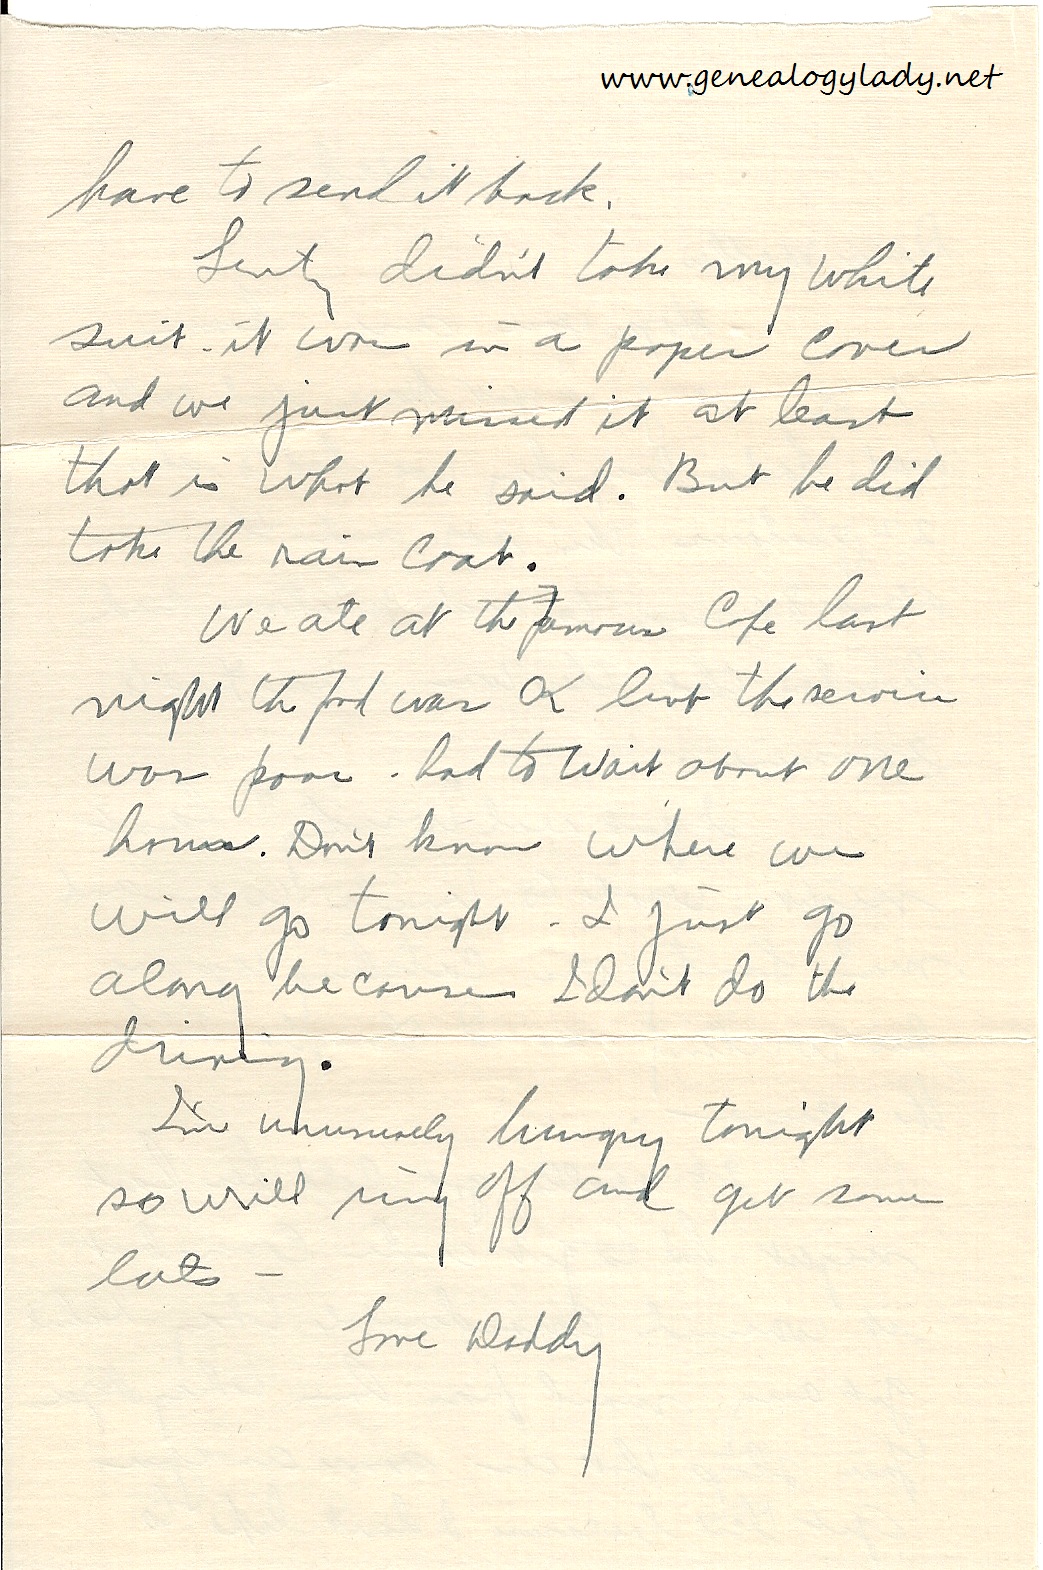 www.genealogylady.net
have to send it back.
Lentz didn't take my white
suit - it was in a paper cover
and we just missed it at least
that is what he said. But he did
take the rain coat.
We ate at the famous Cafe last
night the food was OK but the service
was poor - had to wait about one
hour. Don't know where we
will go tonight - I just go
along because I don't do the
driving.
I'm unusually hungry tonight
so will ring off and get some
eats -
Love Daddy